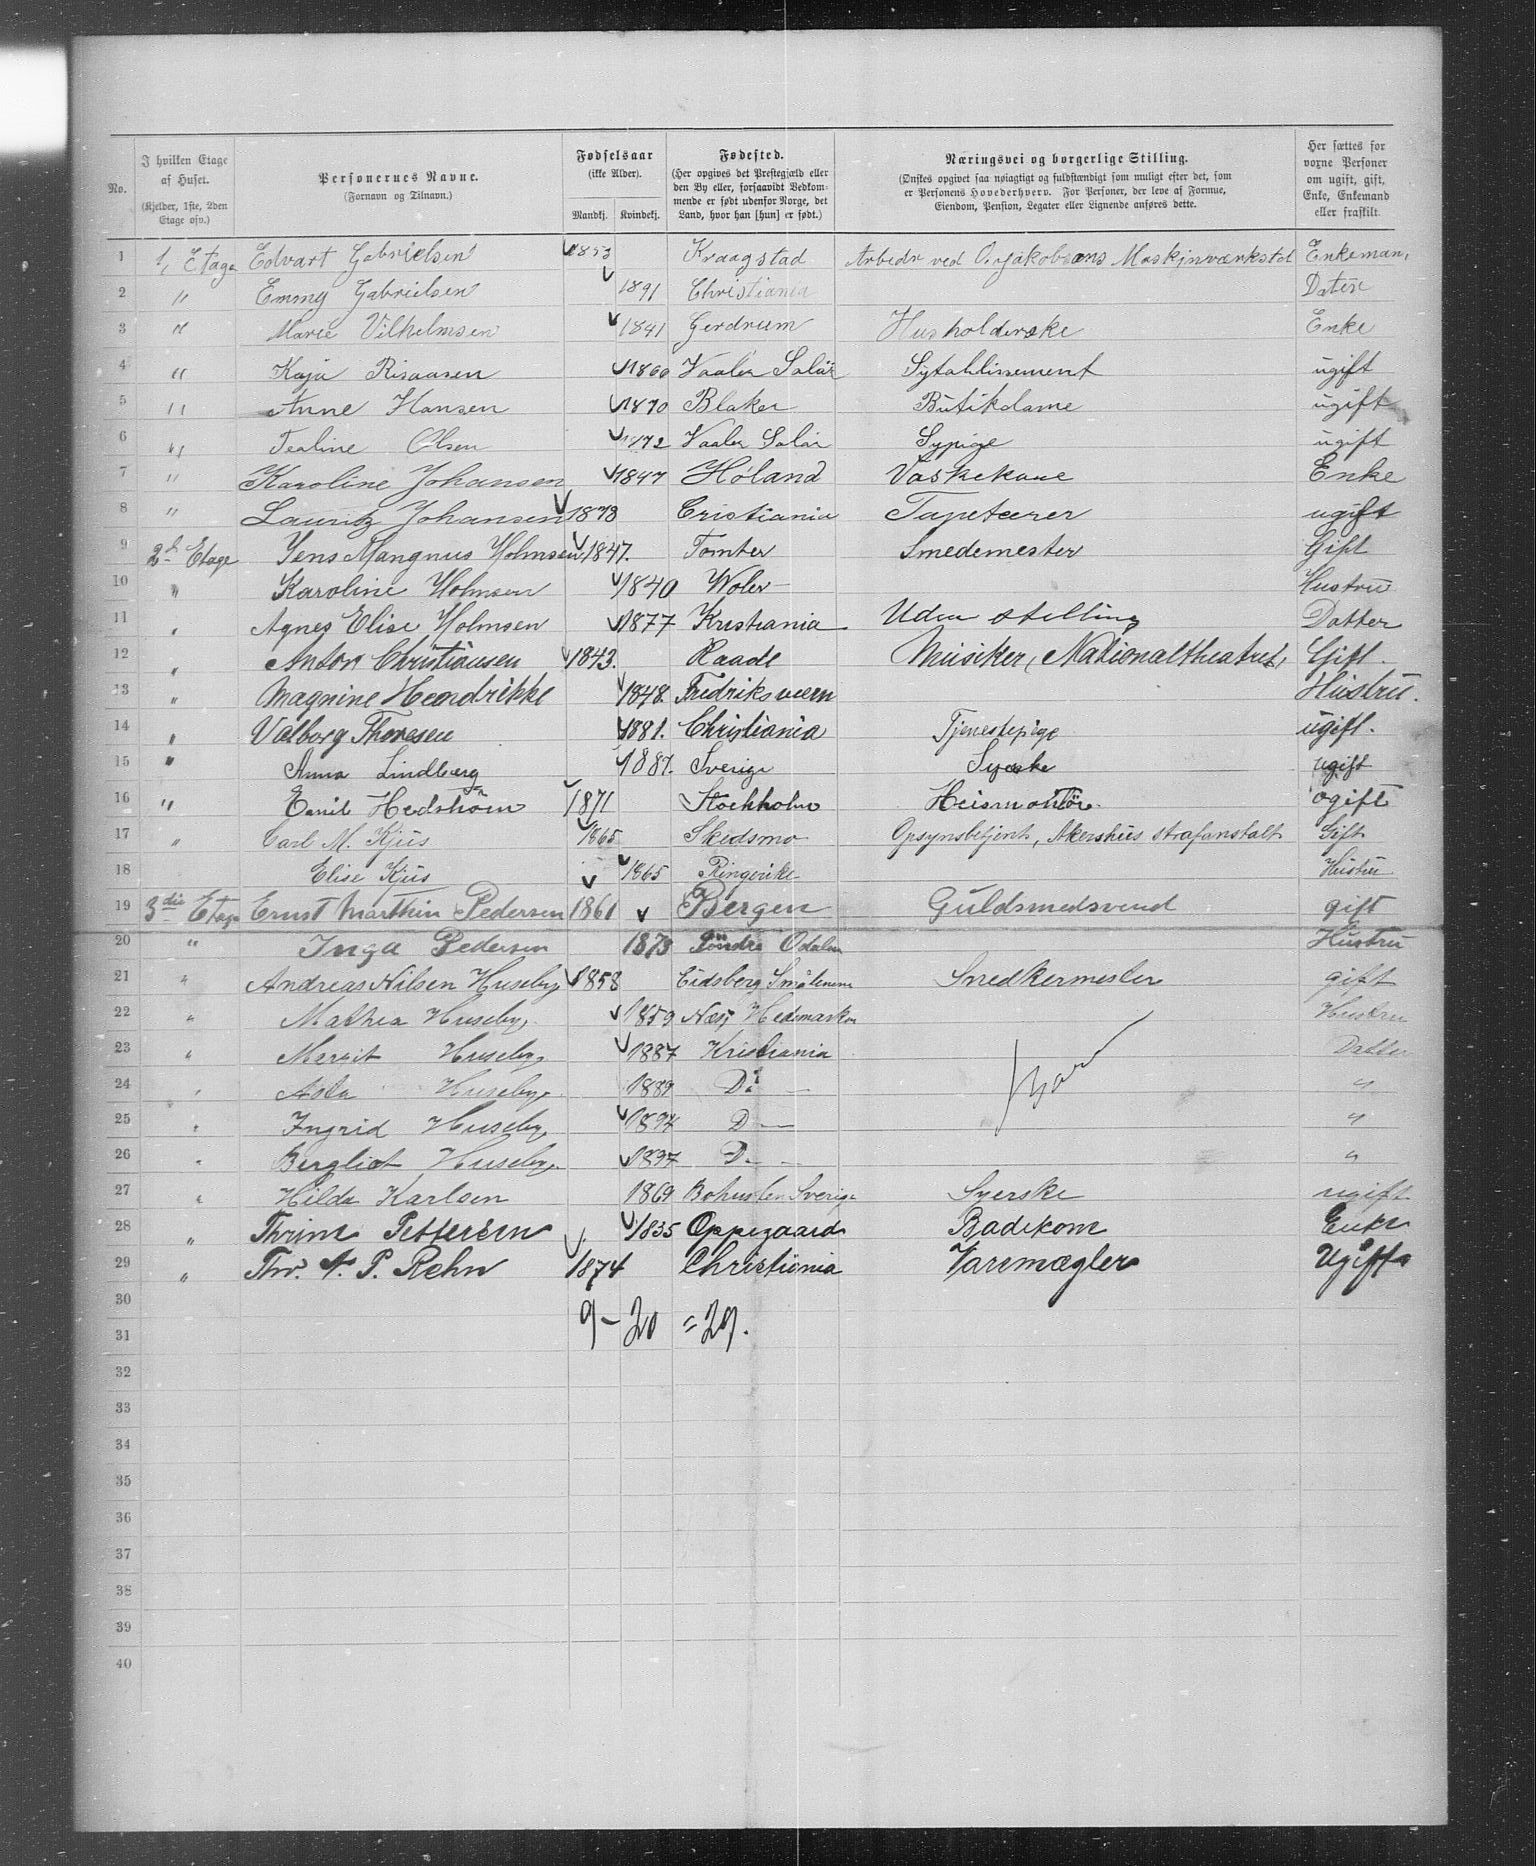 No.
I hvilken Etage af Huset. (Kjelder, 1ste, 2den Etage osv.)
Personernes Navne. (Fornavn og Tilnavn.)
Fødselsaar (ikke Alder).
Mandkj. Kvindekj.
Fødested. (Her opgives det Prestegjæld eller den By eller, forsaavidt Vedkommende er født udenfor Norge, det Land, hvor han [hun] er født.)
Næringsvei og borgerlige Stilling. (Ønskes opgivet saa nøiagtigt og fuldstændigt som muligt efter det, som er Personens Hovederhverv. For Personer, der leve af Formue, Eiendom, Pension, Legater eller Lignende anføres dette.
Her sættes for voxne Personer om ugift, gift, Enke, Enkemand eller fraskilt.
1 1, Etage Edvart Gabrielsen 1853 Kraagstad Arbedr ved O. Jakobsens Maskinværksted Enkeman,
2 " Emmy Gabrielsen 1891 Christiania Dater
3 " Marie Vilhelmsen 1841 Gerdrum Husholderske Enke
4 " Kaja Risaasen 1860 Vaaler Solør Sytablissement ugift
5 " Anne Hansen 1870 Blaker Butikdame ugift
6 " Tealine Olsen 1872 Vaaler Solør Sypige ugift
7 " Karoline Johansen 1847 Høland Vaskekone Enke
8 " Lauritz Johansen 1873 Cristiania Tapetserer ugift
9 2d Etage Jens Mangnus Holmsen 1847. Tomter Smedemester Gift
10 " Karoline Holmsen 1840 Woler Hustru
11 " Agnes Elise Holmsen 1877 Kristiania Uden stelling Datter
12 " Anton Christiansen 1843. Raade Musiker, Nationaltheatret, Gift.
13 " Magnine Hendrikke 1848. Fredriksværn Hustru.
14 " Valborg Thoresen 1881. Christiania Tjenestepige ugift.
15 " Anna Lindberg 1881. Sverige Syerske ugift
16 " Emil Hedström 1871 Stockholm Heismontör. ogift
17 " Carl M. Kjus 1865 Skedsmo Opsynsbetjent, Akershus strafanstalt Gift
18 Elise Kjus 1865 Ringerike Hustru
19 3die Etage Ernst Marthin Pedersen 1861 Bergen Guldsmedsvend gift
20 " Inga Pedersen 1873 Söndre Odalen Hustru
21 " Andreas Nilsen Huseby 1858 Eidsberg Smålenene Snedkermester gift
22 " Mathea Huseby. 1859 Næs, Hedemarken Hustru
23 " Mergit Huseby, 1887 Kristiania Datter
24 " Huseby. 1889 Do "
25 " Ingrid Huseby, 1894 D "
26 " Bergliot Huseby. 1897 D. "
27 " Hilda Karlsen 1869 Bohuslen Sverige Syerske ugift
28 " Thrine Pettersen 1835 Oppegaard Badekone Enke
29 " Thv. A. P. Rehn 1874 Christiania Varemægler Ugift
30
9 - 20 = 29.
31
32
33
34
35
36
37
38
39
40